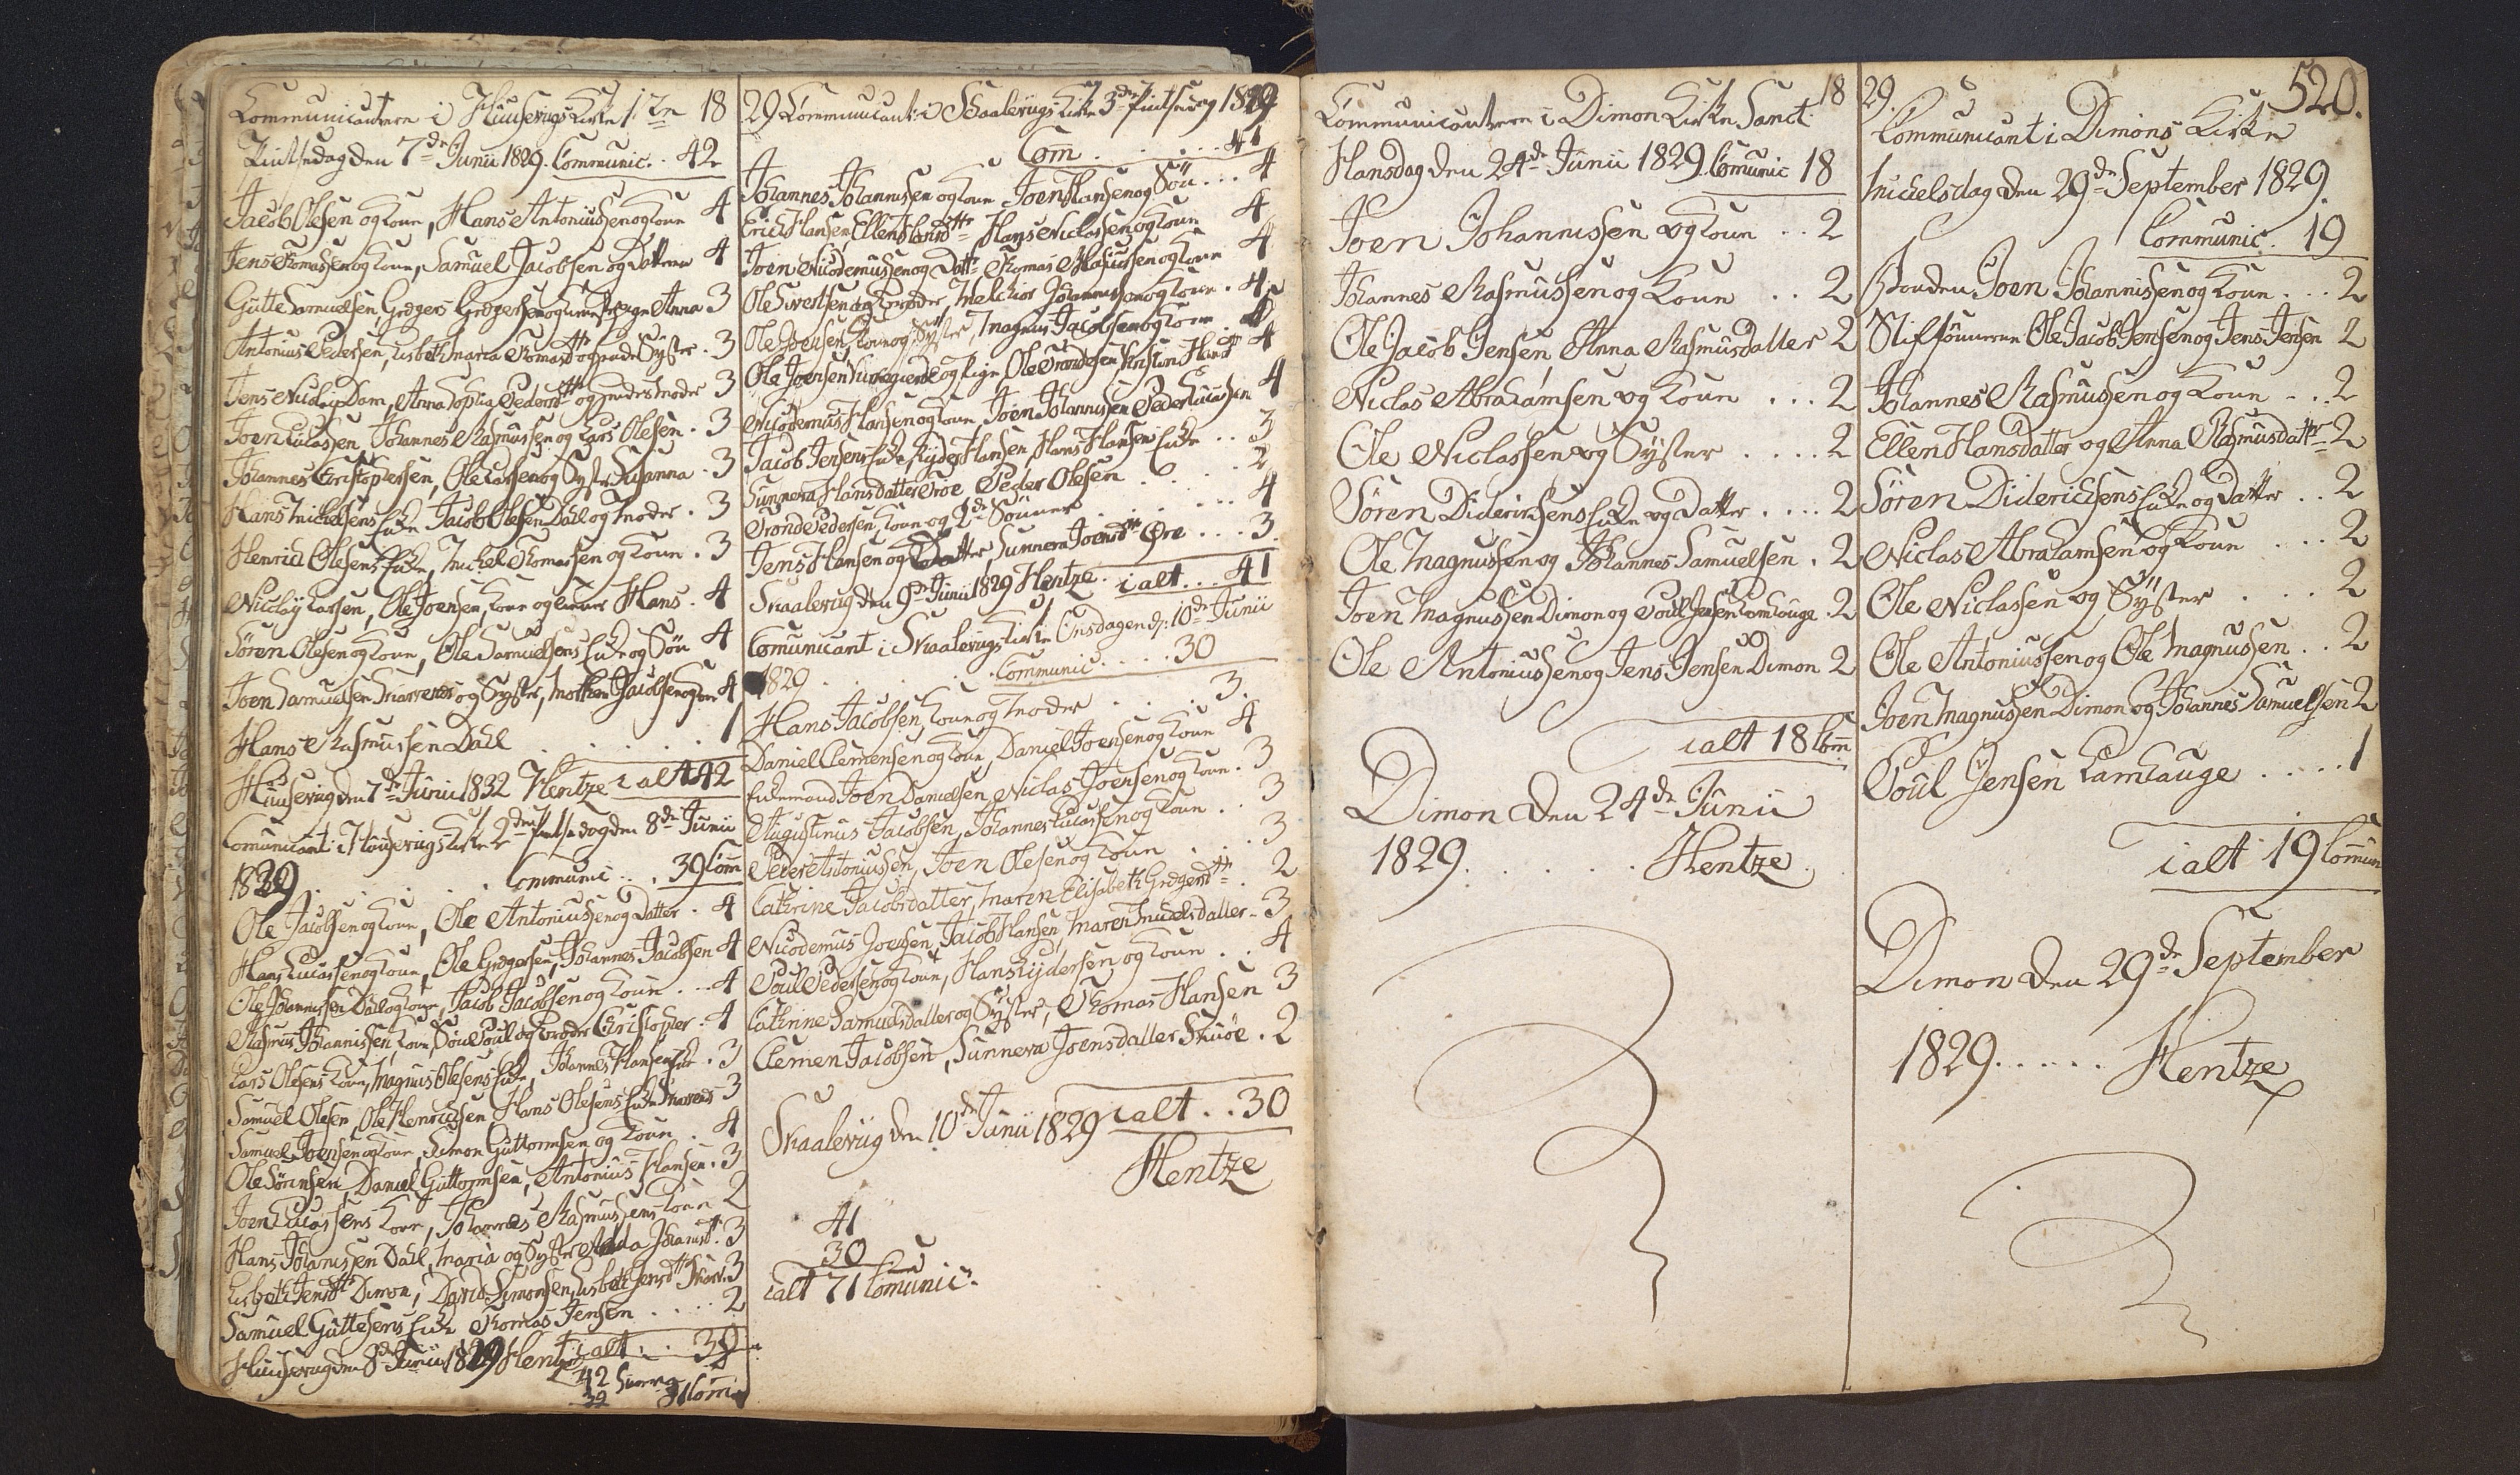 Communicantere i Huusevigs Kirke 1ste 18
Pintsedag den 7de Junii 1829. Communic. . 42
Jacob Olesen og Kone, Hans Antoniussen og Kone 4
Jens Thomassen og Kone, Samuel Jacobsen og Datteren 4
Gutte Samuelsen, Gregers Gregersen og Anna 3
Antonius Pedersen, Lisbeth Maria Thomasdttr og Syster . 3
Jens Dam, Anna Sophia Pedersdttr og hendes Moder 3
Joen Lucassen, Johannes Rasmussen og Lars Olesen . 3
Johannes Christophersen, Ole Larsen og Syster Susanna . 3
Hans Michelsens Enke Jacob Olesen Dahl og Moder . 3
Henrich Olesens Enke, Michel Thomassen og Kone . 3
Nicolaj Larsen, Ole Joensen, Kone og Hans . 4
Søren Olesen og Kone, Ole Samuelsens Enke og Søn 4
Joen Samuelsen og Syster, Morten Jacobsen og Kone 4
Hans Rasmussen Dahl . . . . . 1
Huusevig den 7de Junii 1832 Hentze ialt 42
Comunicant i Huusevigs Kirke 2den Pintsedag den 8de Junii
1829 . . . . . Communic . . 39 Com
Ole Jacobsen og Kone, Ole Antoniussen og Datter . 4
Hans Lucassen og Kone, Ole Gregersen, Johannes Jacobsen 4
Ole Johannissen Dahl og Kone, Jacob Jacobsen og Kone . . . 4
Rasmus Johannissen, Kone, Søn Poul og Broder Christopher . 4
Lars Olesens Kone, Magnus Olesens Enke, Johannes Hansens . 3
Samuel Olesen, Ole Henrichsen, Hans Olesens Enke 3
Samuel Joensen og Kone, Simon Guttormsen og Kone . 4
Ole Sørensen, Daniel Guttormsen, Antonius Hansen . 3
Joen Lucassens Kone, Johannes Rasmussens Kone 2
Hans Johannissen Dahl, Maria og Syster Adda Johannisd. 3
Lisbeth Jensdttr Dimon, David Simonsen, Lisbeth Jensdttr 3
Samuel Guttesens Enke Thomas Jensen . . . . 2
Huusevig den 8de Junii 1829 Hentze ialt . . 39
42
39 81 Com
29 Communicant i Skaalevigs Kirke 3die Pintsedag 1829
Com . . . . . 41
Johannes Johannissen og Kone Joen Hansen og Søn . . . 4
Erich Hansen, Ellen Hansdttr, Hans Niclassen og Kone 4
Joen Nicodemussen og Datt. Thomas Rasmussen og Kone 4
Ole Sivertsen og Broder, Melchior Johannissen og Kone . 4
Ole Joensen, Kone og Syster, Magnus Jacobsen og Kone
Ole Joensen og Pige Ole Trondesen Kirstine Hansd. 4
Nicodemus Hansen og Kone, Joen Johannissen Peder Lucassen 4
Jacob Jensens Enke, Rijder Hansen, Hans Hansens Enke . . 3
Sunneva Hansdatter Øre Peder Olesen . . . . 2
Tronde Pedersen, Kone og 2de Sönner . . . . 4
Jens Hansen og Datter, Sunneva Joensdttr Øre . . . 3
Skaalevig den 9de Junii 1829 Hentze. ialt . . . 41
Comunicant i Skaalevigs Kirke Onsdagen d. 10de Junii
1829 . . . . . Communic . . . . 30
Hans Jacobsen, Kone og Moder . . . 3.
Daniel Clemensen og Kone, Daniel Joensen og Kone 4
Enkemand Joen Danielsen, Niclas Joensen og Kone . 3
Augustinus Jacobsen, Johannes Lucassen og Kone . . 3
Peder Antoniussen, Joen Olesen og Kone . . . 3
Cathrine Jacobsdatter, Maren Elisabeth Gregersdttr . 2
Nicodemus Joensen, Jacob Hansen, Maren Michelsdatter . 3
Poul Pedersen og Kone, Hans Rijdersen og Kone . . 4
Cathrine Samuelsdatter og Syster, Thomas Hansen 3
Clemen Jacobsen, Sunneva Joensdatter Skuöe . 2
Skaalevig den 10de Junii 1829 ialt . . 30
Hentze
41
30
ialt 71 Comunic.
Communicantere i Dimon Kirke Sanct 18
Hansdag den 24de Junii 1829 Comunic 18
Joen Johannissen og Kone . . 2
Johannes Rasmussen og Kone . . 2
Ole Jacob Jensen, Anna Rasmusdatter 2
Niclas Abrahamsen og Kone . . . 2
Ole Niclassen og Syster . . . . 2
Sören Diderichsens Enke og Datter . . . . 2
Ole Magnussen og Johannes Samuelsen . 2
Joen Magnussen Dimon og Poul Jensen Lamhauge . 2
Ole Antoniussen og Jens Jensen Dimon 2
ialt 18 Com
Dimon den 24de Junii
1829 . . . . . . Hentze.
29. 520.
Communicant i Dimons Kirke
Mickelsdag den 29de September 1829.
Communic. 19
Bonden Joen Johannissen og Kone . . . 2
Stifsönnerne Ole Jacob Jensen og Jens Jensen 2
Johannes Rasmussen og Kone . . . 2
Ellen Hansdatter og Anna Rasmusdattr 2
Sören Diderichsens Enke og Datter . . 2
Niclas Abrahamsen og Kone . . . 2
Ole Niclasen og Syster . . . 2
Ole Antoniussen og Ole Magnussen . . 2
Joen Magnussen Dimon og Johannes Samuelsen 2
Poul Jensen Lamhauge . . . . . 1
ialt 19 Commun
Dimon den 29de September
1829 . . . . . Hentze